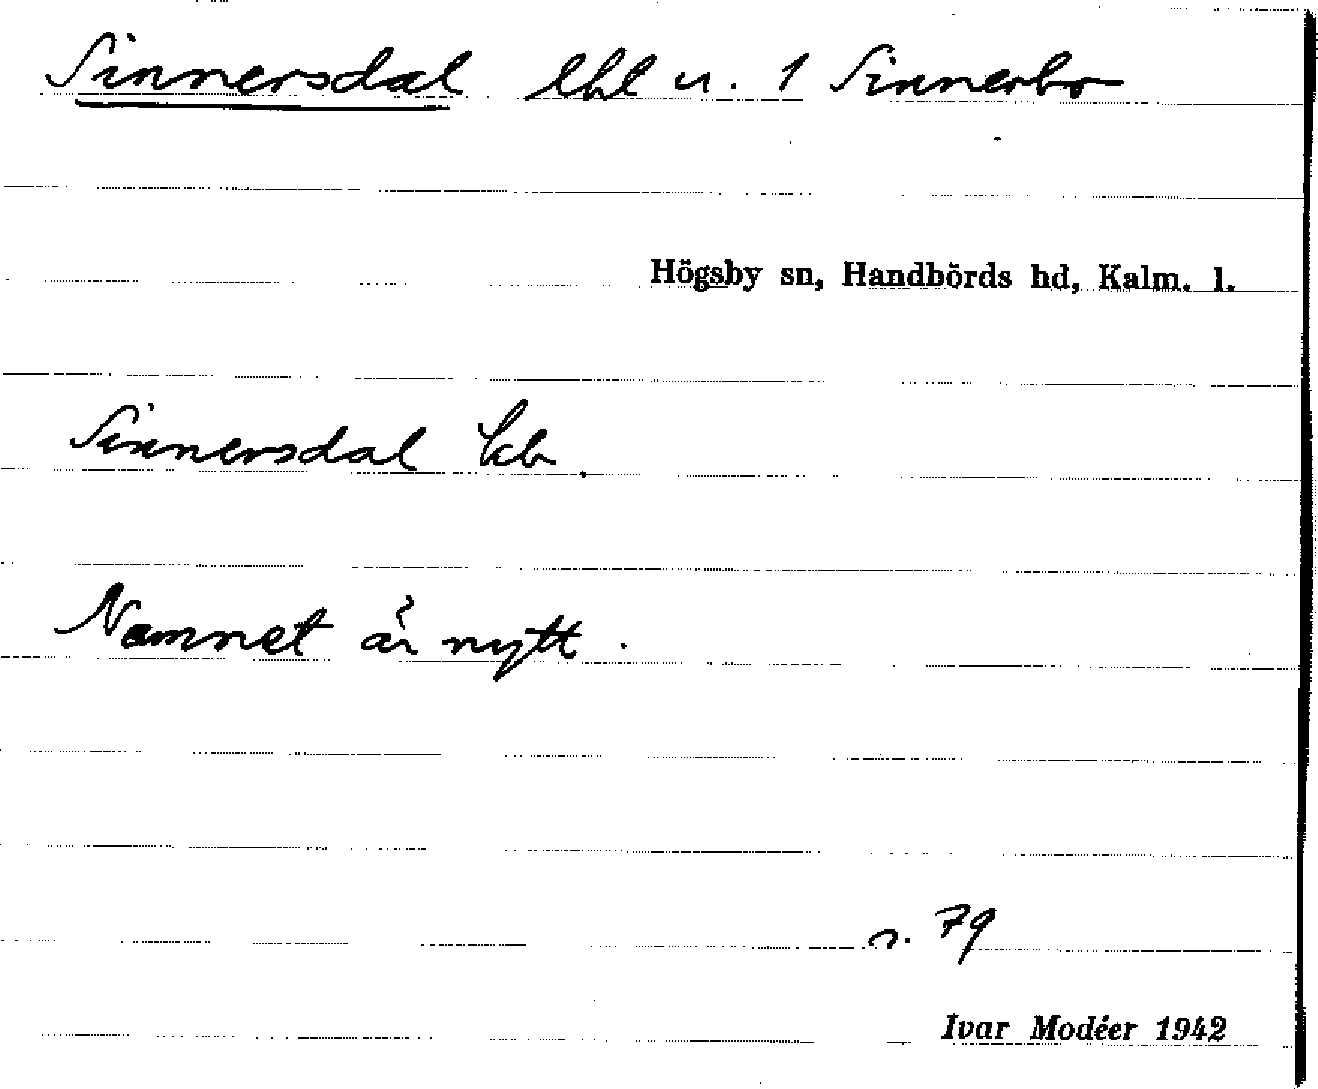 Sinnersdal lht u. 1 Sinnerbo
Högsby sn, Handbörds hd, Kalm. l.
Sinnersdal kb.
Namnet är nytt.
s. 79
Ivar Modéer 1942